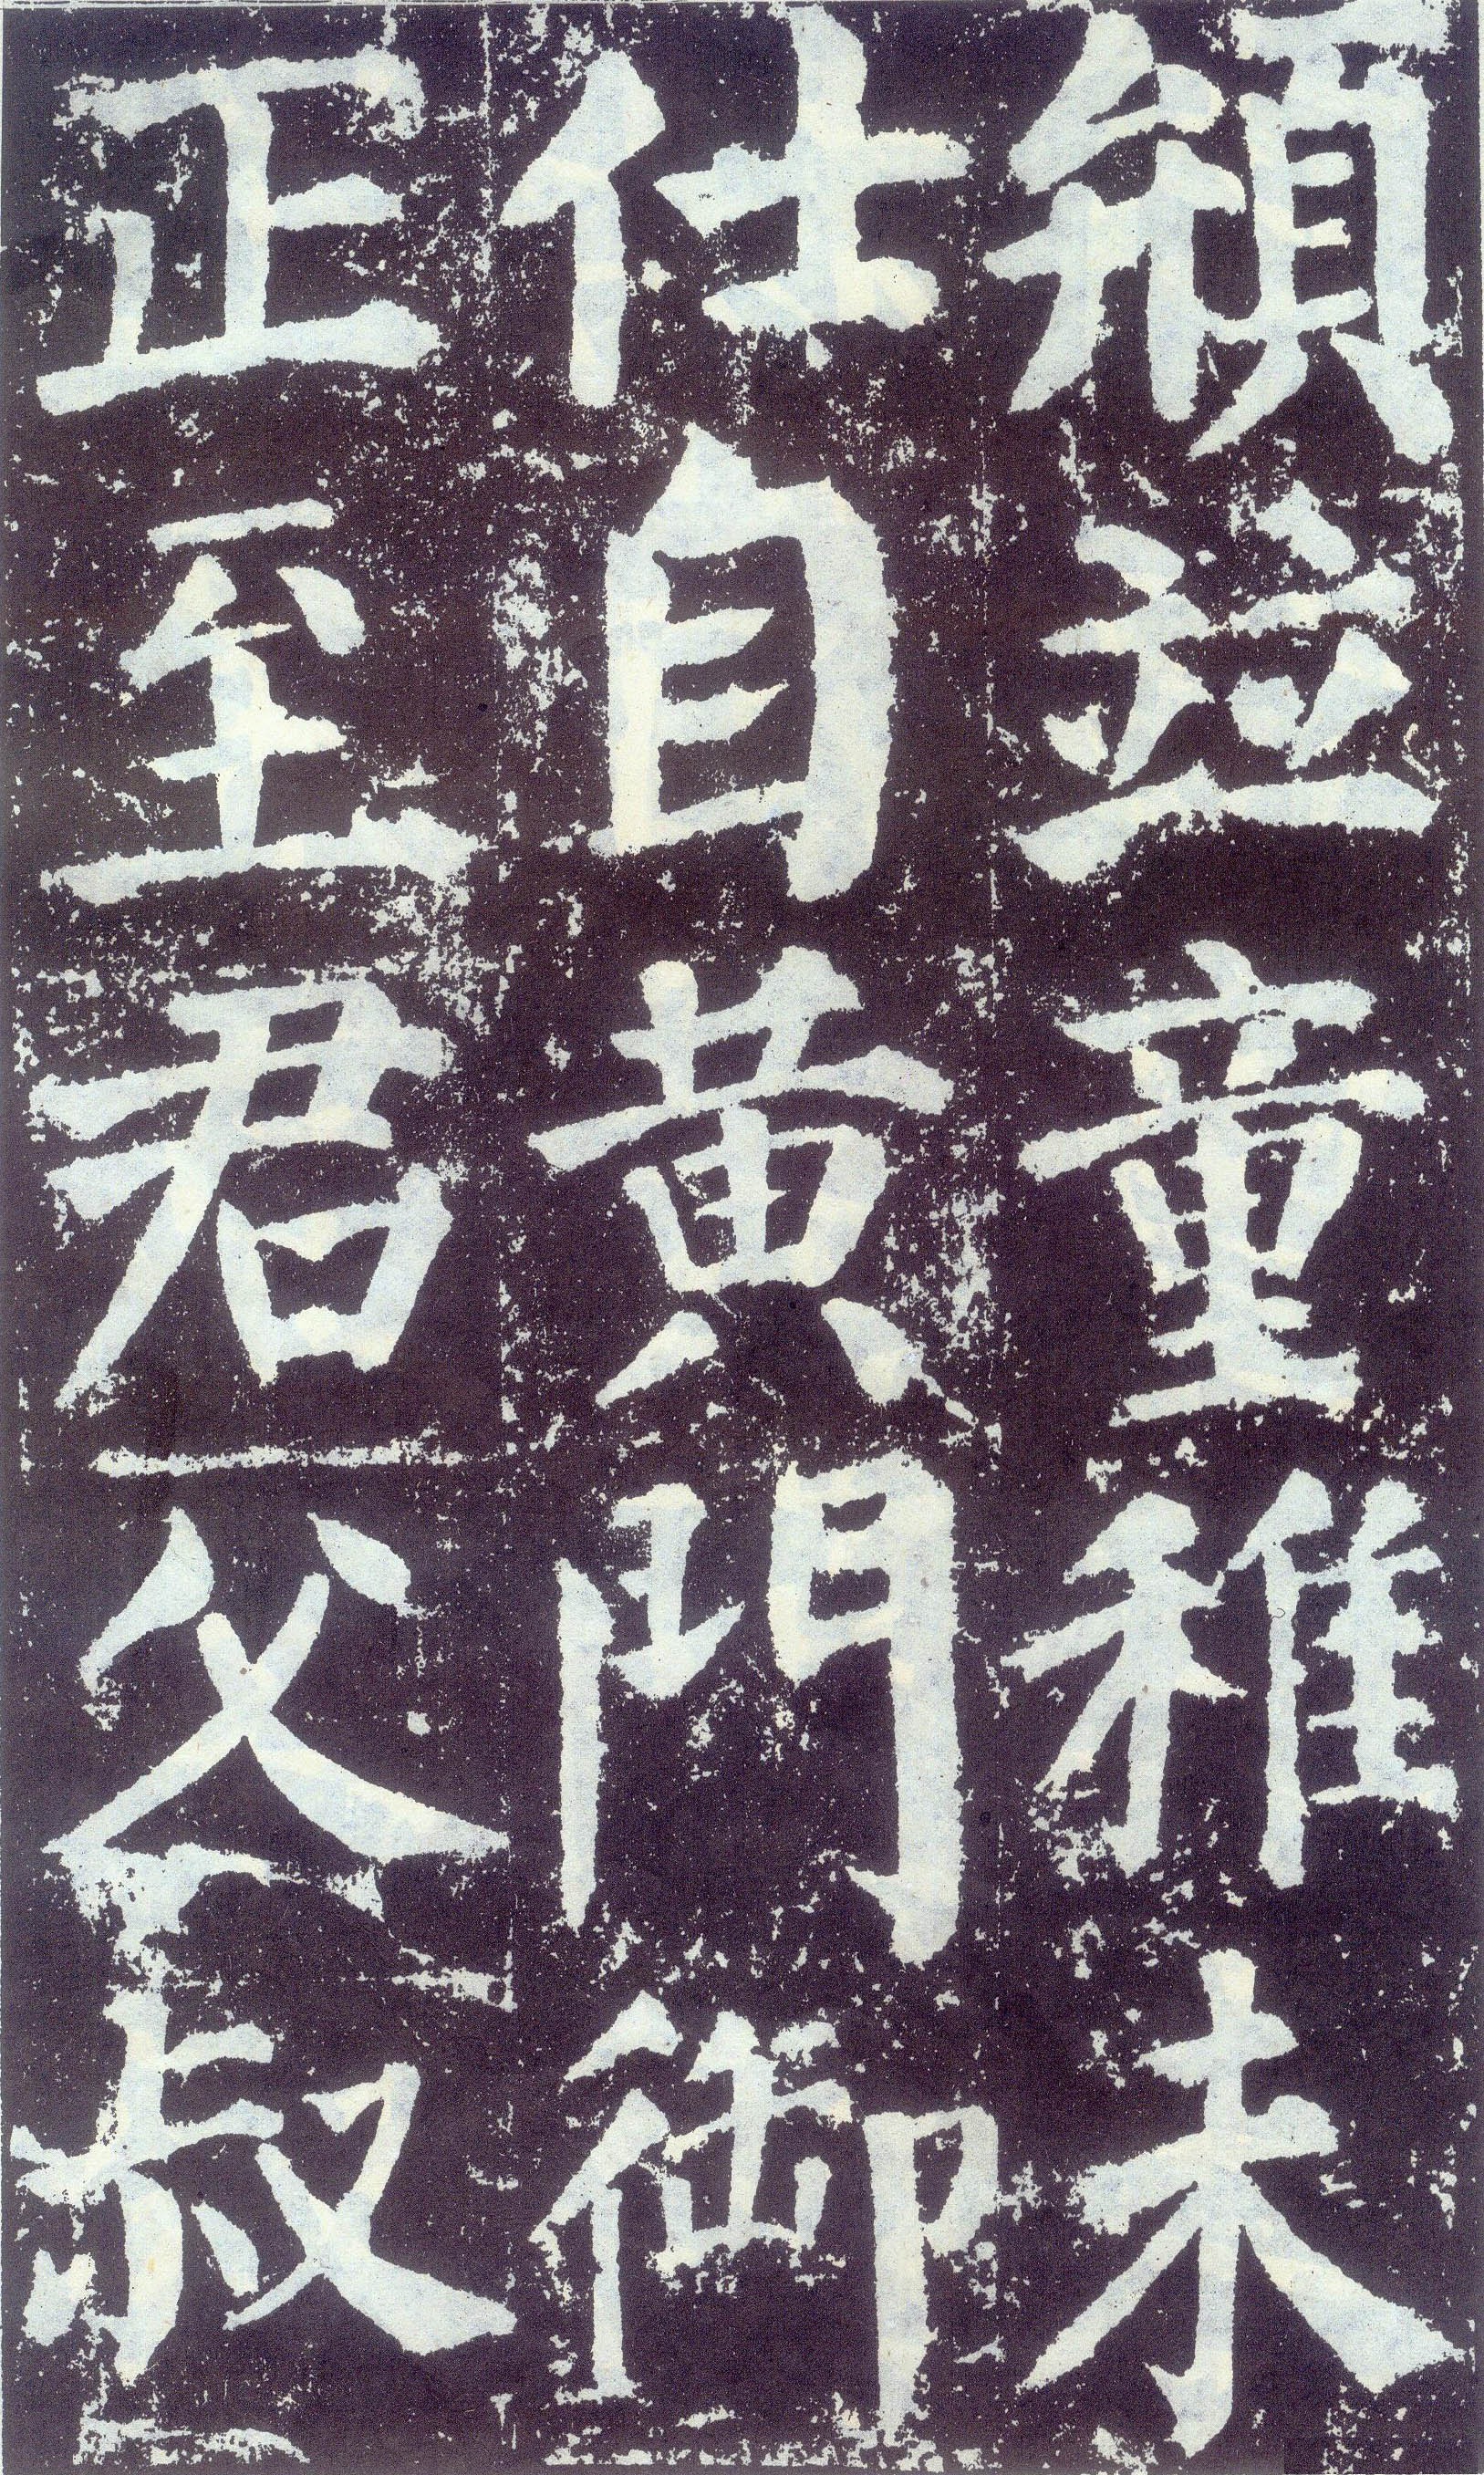 竝童稚未
仕自黃門御
正至君父叔